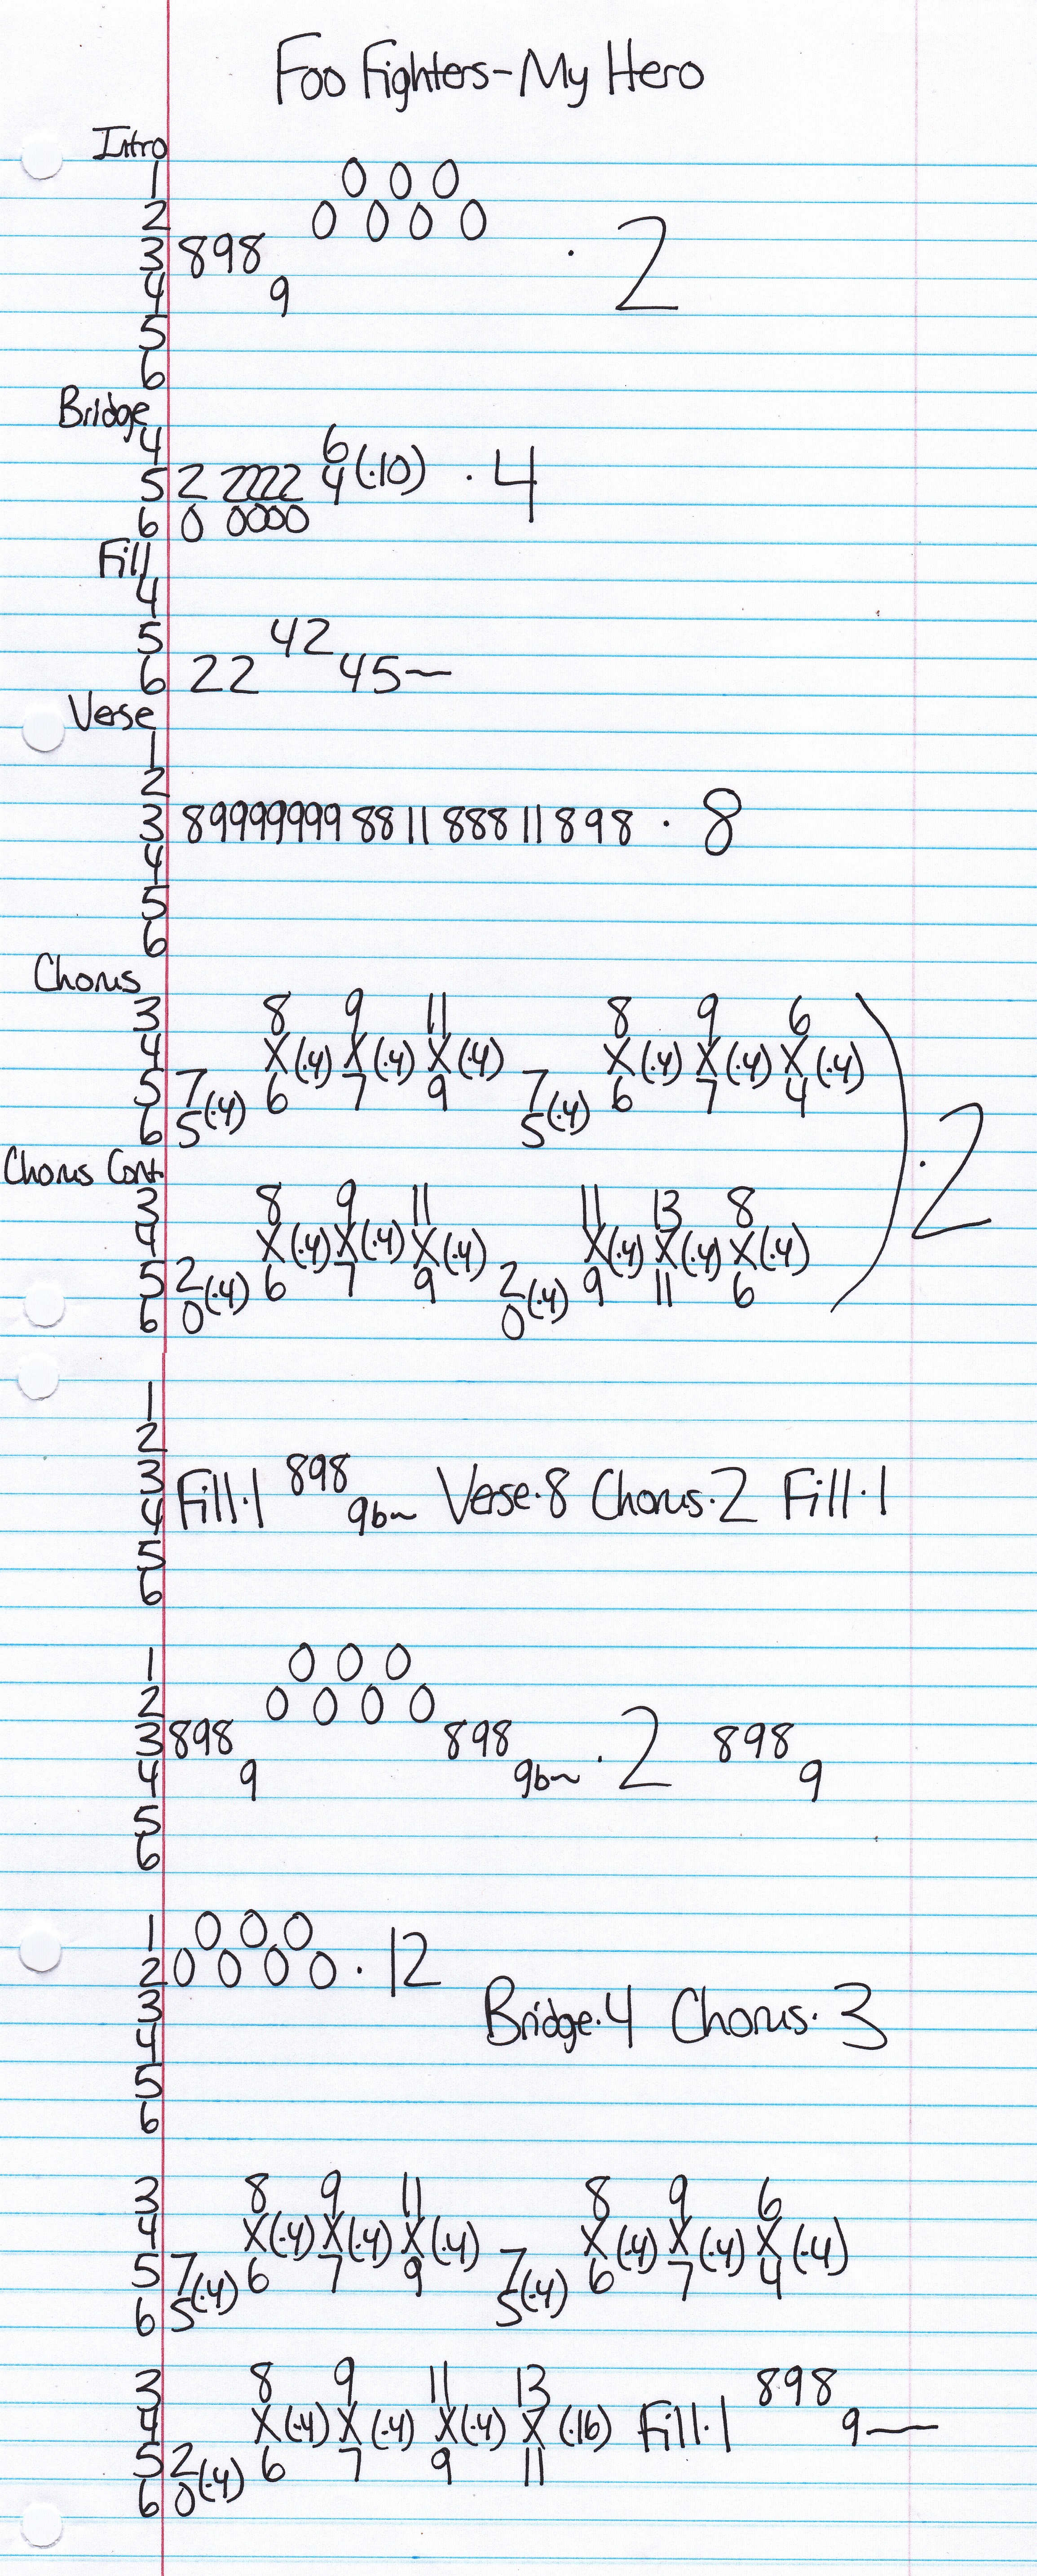 Foo Fighters-My Hero
Intro
1 0 0 0
2 0 0 0 0
3 898 · 2
4 9
5
6
Bridge
4 6
5 2 2222 4(·10) · 4
6 0 0000
Fill
4
5 42
6 22 45~
Verse
1
2
3 89999999 88 11 888 11 898 · 8
4
5
6
Chorus
3 8 9 11 8 9 6
4 X(·4) X(·4) X(·4) X(·4) X(·4) X(·4)
5 7(·4) 6 7 9 7(·4) 6 7 4
6 5 5
) · 2
Chorus Cont.
3 8 9 11 11 13 8
4 X(·4) X(·4) X(·4) X(·4) X(·4) X(·4)
5 2(·4) 6 7 9 2(·4) 9 11 6
6 0 0
1
2
3 898
4 Fill·1 9b~ Verse·8 Chorus·2 Fill·1
5
6
1 0 0 0
2 0 0 0 0
3 898 898 · 2 898
4 9 9b~ 9
5
6
1 0 0 0
2 0 0 0 0 · 12
3 Bridge·4 Chorus·3
4
5
6
3 8 9 11 8 9 6
4 X(·4) X(·4) X(·4) X(·4) X(·4) X(·4)
5 7(·4) 6 7 9 7(·4) 6 7 4
6 5 5
3 8 9 11 13 898
4 X(·4) X(·4) X(·4) X(·16) Fill·1 9—
5 2(·4) 6 7 9 11
6 0